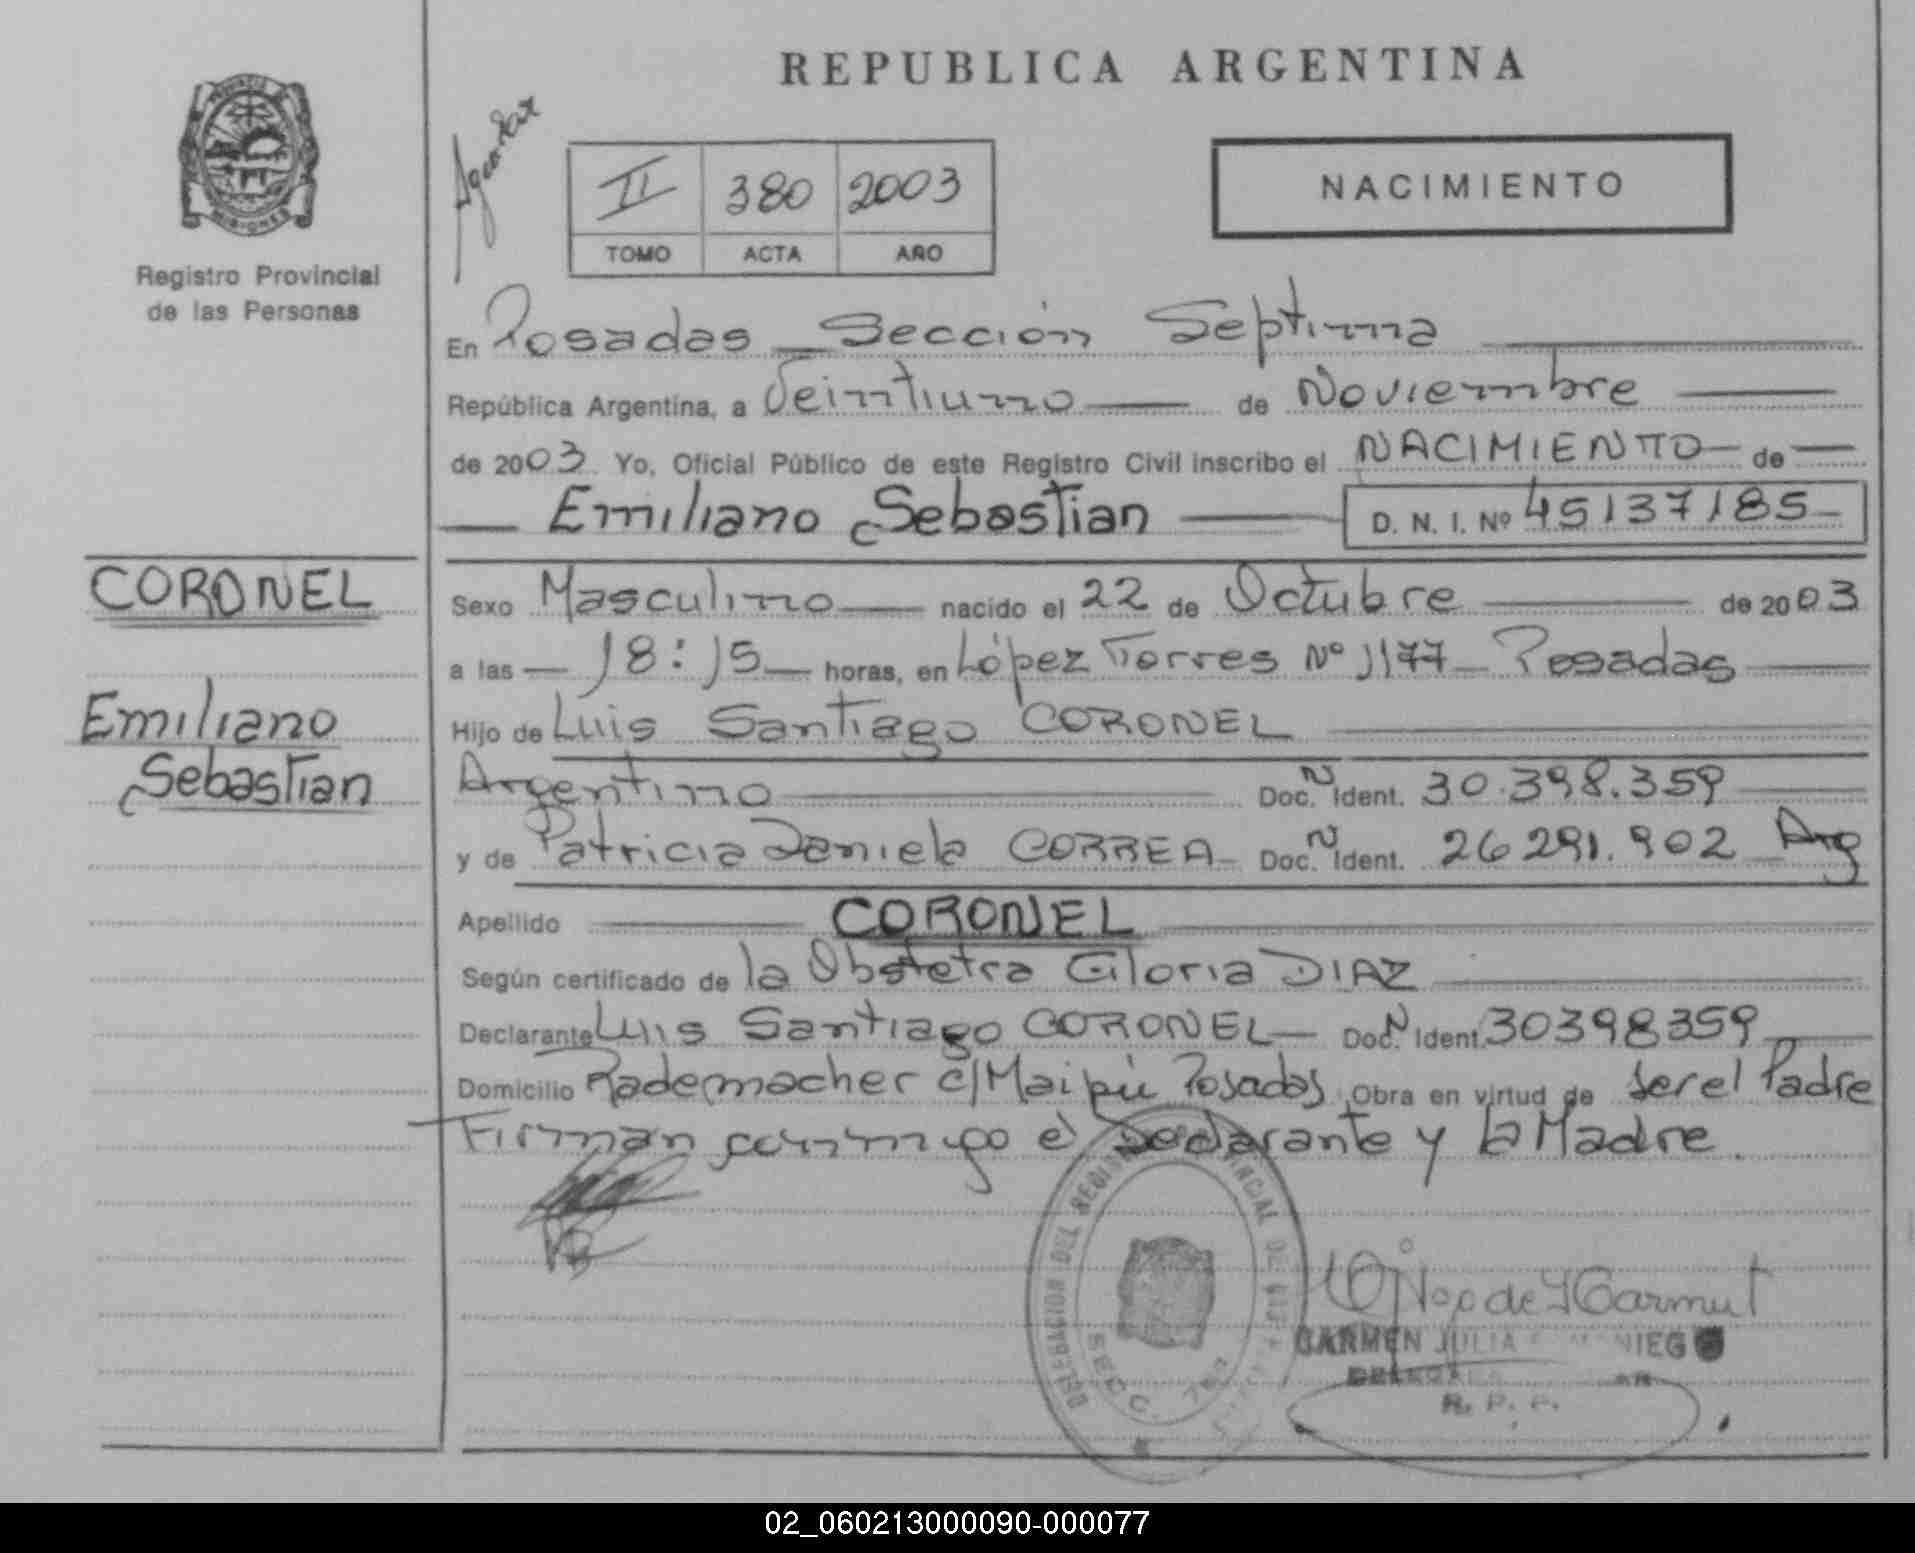 REPUBLICA ARGENTINA
PROVINCIA DE
MISIONES
Registro Provincial
de las Personas
II 380 2003
TOMO ACTA AÑO
NACIMIENTO
En Posadas Sección Septima
República Argentina, a Veintiuno de Noviembre
de 2003 Yo, Oficial Público de este Registro Civil inscribo el NACIMIENTO de
Emiliano Sebastian D. N. I. Nº 45137185
CORONEL
Emiliano
Sebastian
Sexo Masculino nacido el 22 de Octubre de 2003
a las 18:15 horas, en López Torres Nº 1177 Posadas
Hijo de Luis Santiago CORONEL
Argentino Doc. N Ident. 30.398.359
y de Patricia Daniela CORREA Doc. N Ident. 26 291.902 Arg
Apellido CORONEL
Según certificado de la Obstetra Gloria DIAZ
Declarante Luis Santiago CORONEL Doc. N Ident. 30398359
Domicilio Rademacher c/Maipú Posadas Obra en virtud de ser el Padre
Firman conmigo el Declarante y la Madre.
DELEGACION DEL REGISTRO PROVINCIAL DE
SECC. 7ma
CARMEN JULIA
R. P. P.
02_060213000090-000077